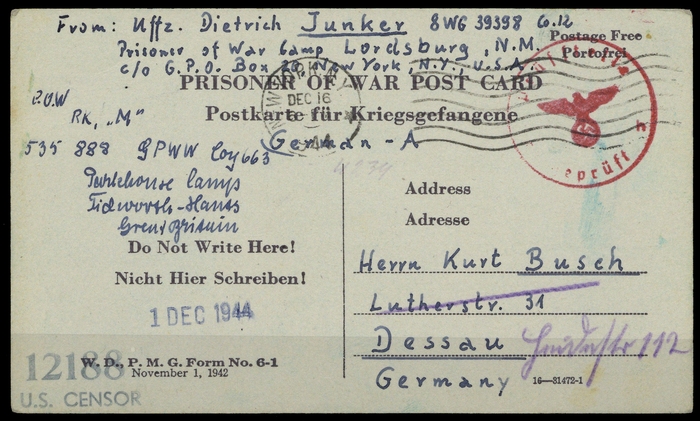 From: Uffz. Dietrich Junker 8WG 39398 Co.12
Postage Free
Prisoner of War Camp Lordsburg, N.M.
Portofrei
c/o G.P.O. Box 20, New York, N.Y., U.S.A.
PRISONER OF WAR POST CARD
DEC 16
Postkarte für Kriegsgefangene
German - A
P.O.W
RK, "M"
535 888 GPWW Coy 663
Parkhouse Camps
Tidworth-Hants
Great Britain
geprüft
Address
Adresse
Do Not Write Here!
Nicht Hier Schreiben!
1 DEC 1944
Herrn Kurt Busch
Lutherstr. 31
Dessau
112
Germany
12188
U.S. CENSOR
W. D., P. M. G. Form No. 6-1
November 1, 1942
16—31472-1